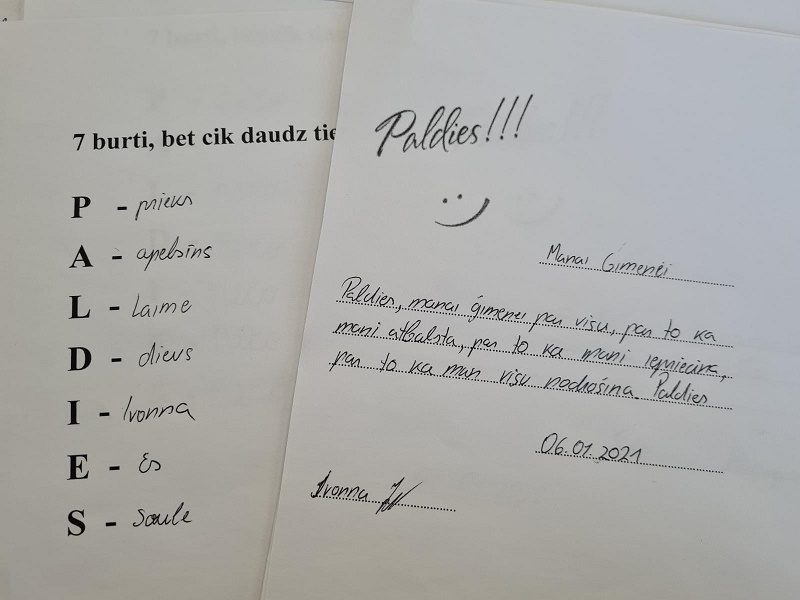 7 burti, bet cik daudz tie
P - prieks
A - apelsīns
L - Laime
D - dievs
I - Ivonna
E - Es
S - Saule
Paldies!!!
:)
Manai Ģimenēi
Paldies, manai ģimenei par visu, par to ka
mani atbalsta, par to ka mani iepriecina,
par to ka man visu nodrošina. Paldies
06.01.2021
Ivonna